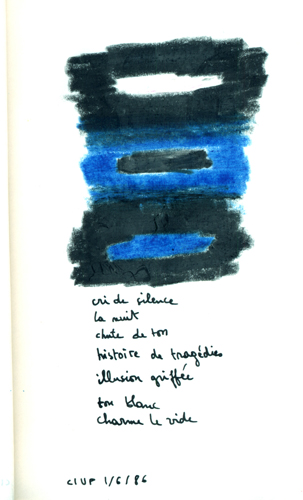 cri de silence
la nuit
chute de ton
histoire de tragédies
illusion griffée
ton blanc
charme le vide
CIUP 1/6/86